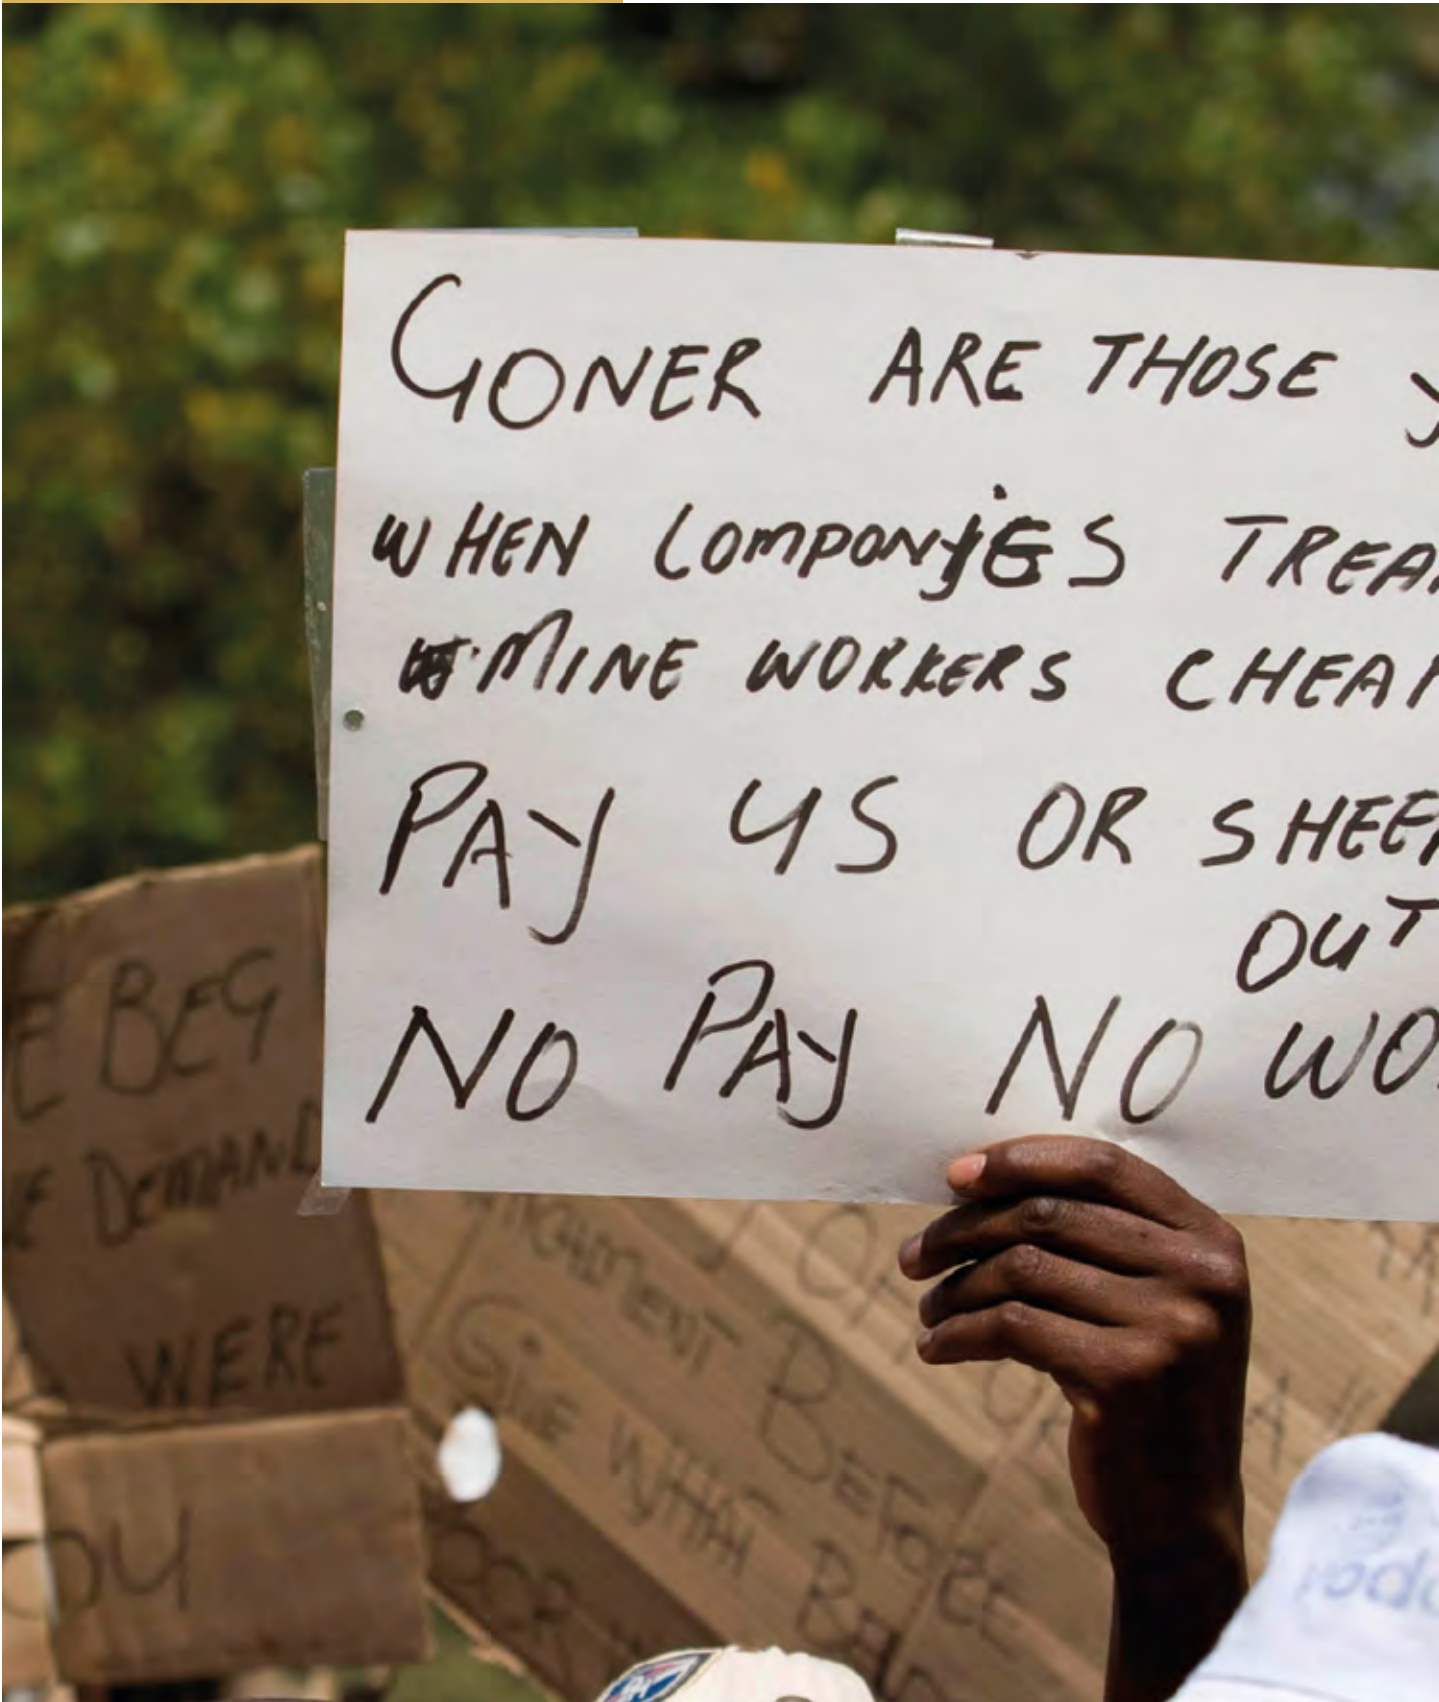 GONER ARE THOSE Y
WHEN COMPONIES TREA
MINE WORKERS CHEAP
PAY US OR SHEEP
OUT
NO PAY NO WO
E BEG
E DEMAND
WERE
OU
BEFORE
GIVE WHAT BELO